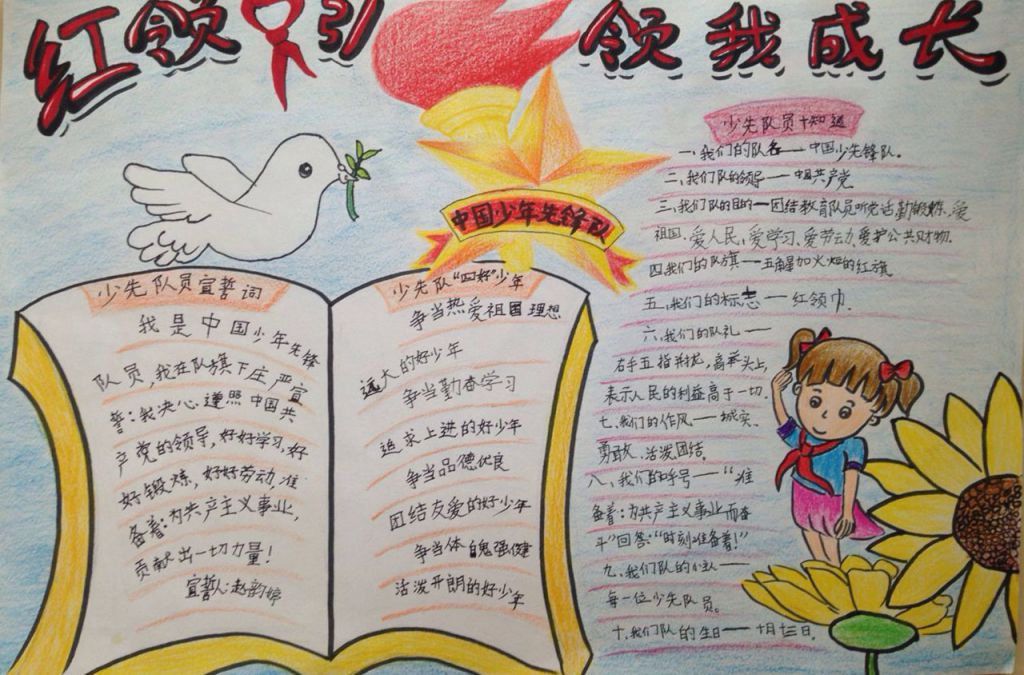 红领巾引领我成长
中国少年先锋队
少先队员宣誓词
我是中国少年先锋
队员,我在队旗下庄严宣
誓:我决心遵照中国共
产党的领导,好好学习,好
好锻炼,好好劳动,准
备着:为共产主义事业,
贡献出一切力量!
宣誓人:赵韵婷
少先队“四好”少年
争当热爱祖国理想
远大的好少年
争当勤奋学习
追求上进的好少年
争当品德优良
团结友爱的好少年
争当体魄强健
活泼开朗的好少年
少先队员十知道
一、我们的队名——中国少先锋队。
二、我们队的领导——中国共产党
三、我们队的目的—团结教育队员听党话勤锻炼、爱
祖国、爱人民、爱学习、爱劳动、爱护公共财物.
四我们的队旗——五角星加火炬的红旗
五、我们的标志——红领巾.
六、我们的队礼——
右手五指并拢,高举头上,
表示人民的利益高于一切.
七、我们的作风——诚实、
勇敢、活泼团结。
八、我们的呼号——“准
备着:为共产主义事业而奋
斗”回答:“时刻准备着!”
九、我们队的小主人——
每一位少先队员。
十、我们队的生日——十月十三日.